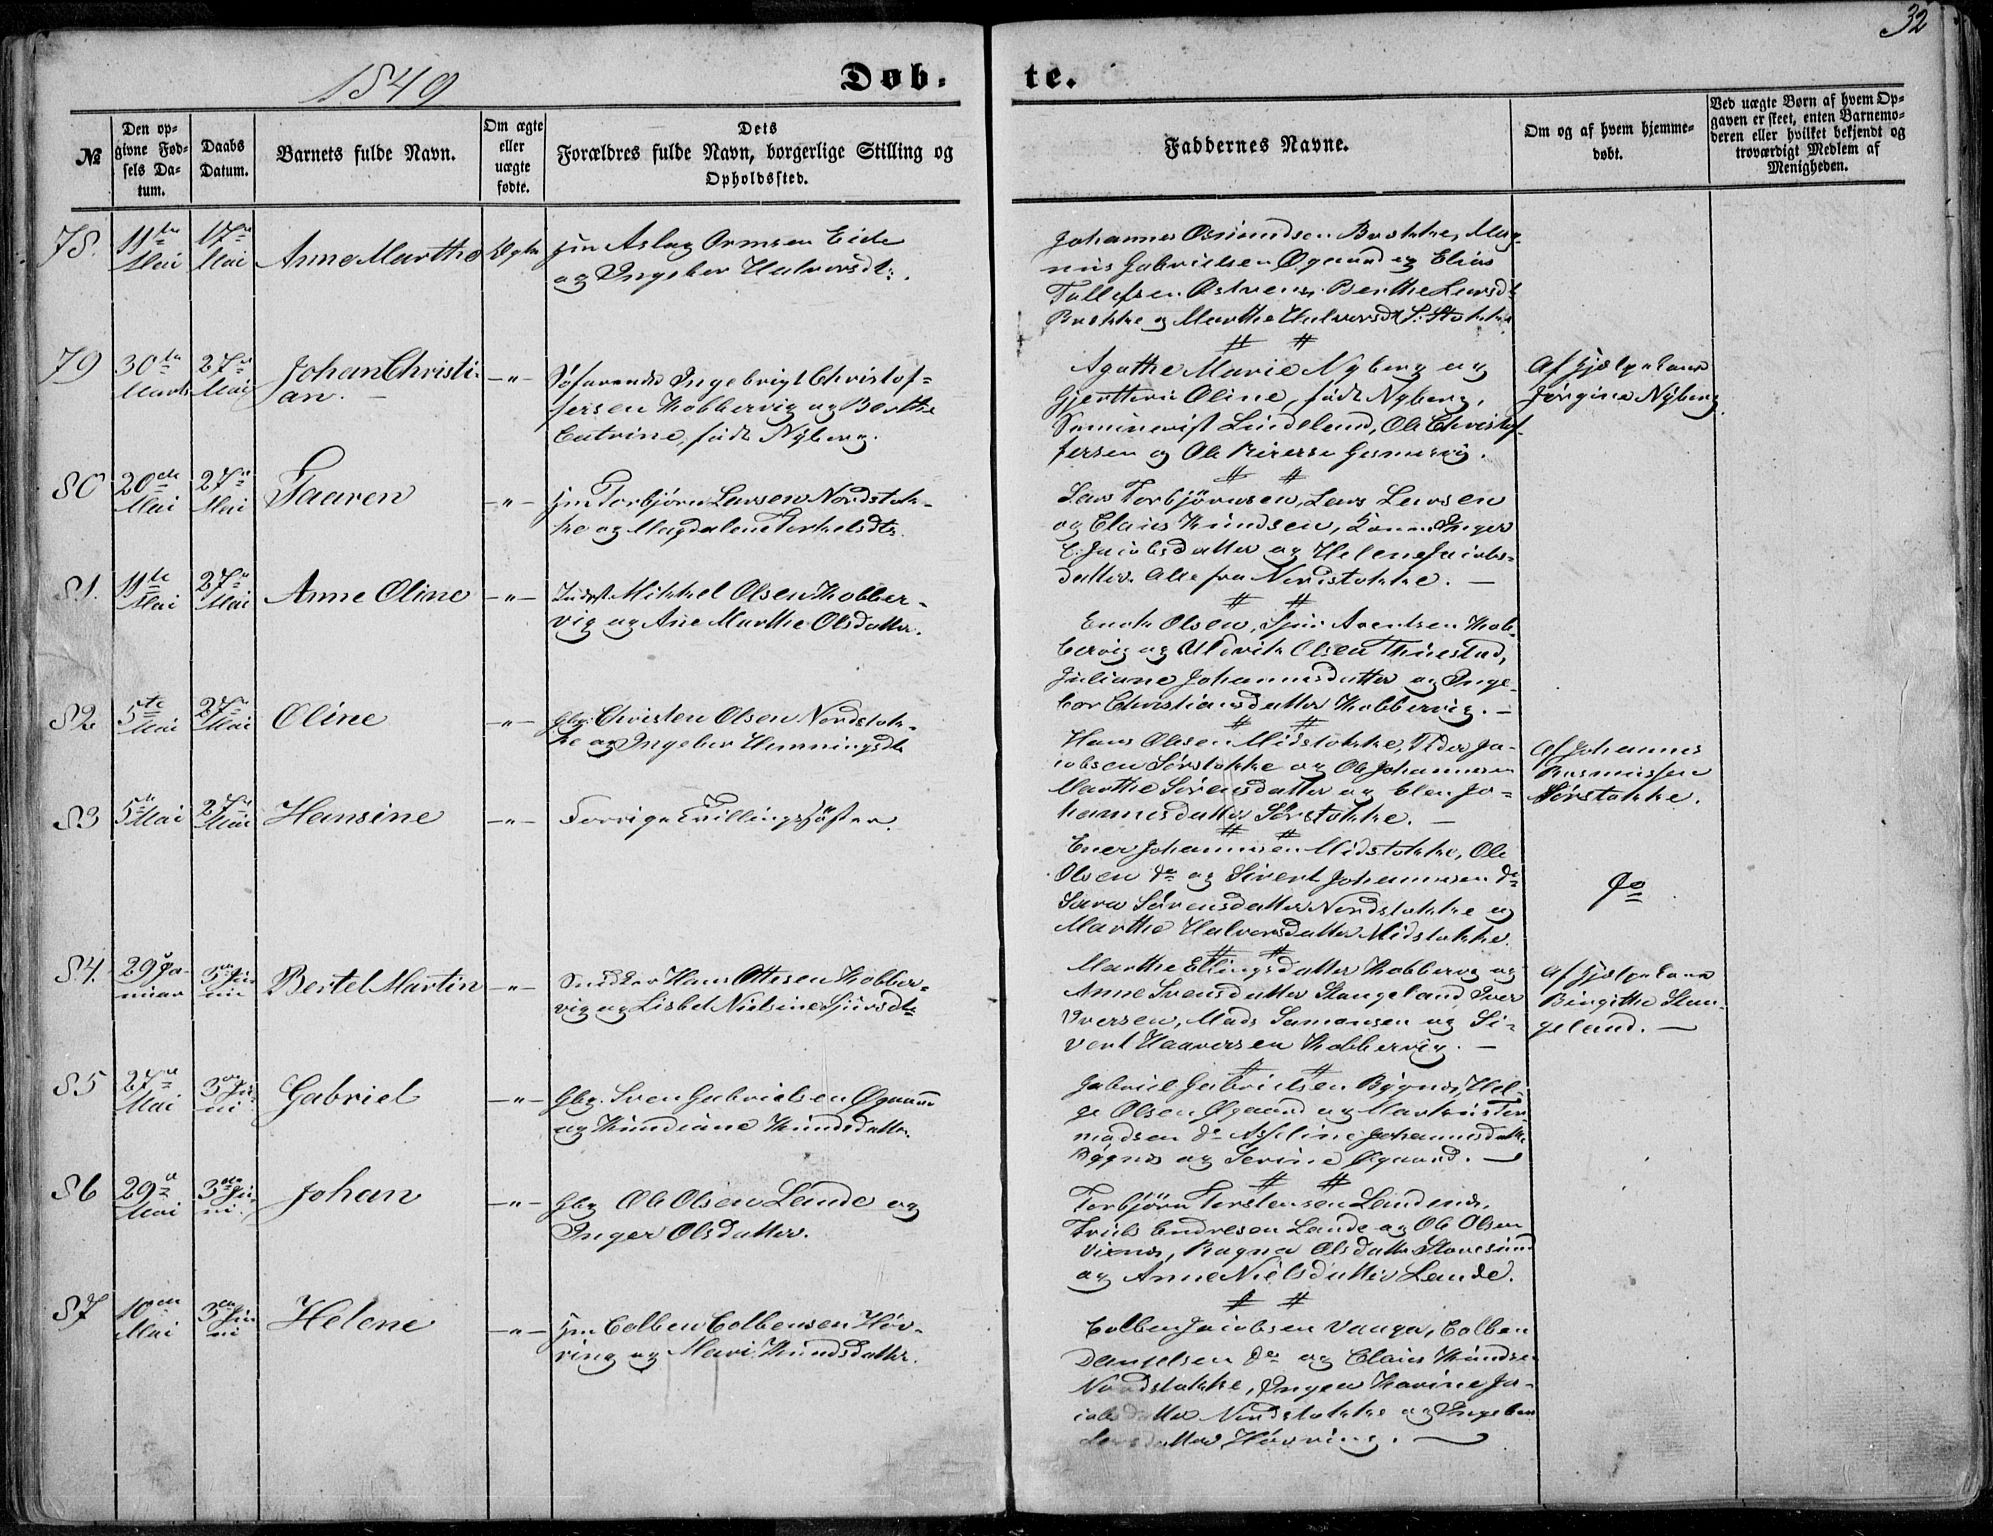 32
1849
Døb-
te.
№
Den op-
givne Fød-
sels Da-
tum.
Daabs
Datum.
Barnets fulde Navn.
Om ægte
eller
uægte
fødte.
Dets
Forældres fulde Navn, borgerlige Stilling og
Opholdssted.
Faddernes Navne.
Om og af hvem hjemme-
døbt.
Ved uægte Børn af hvem Op-
gaven er skeet, enten Barnemo-
deren eller hvilket bekjendt og
troværdigt Medlem af
Menigheden.
78.
11te
Mai
17de
Mai
Anne Marthe
Ægte
Aslag Ormsen Eide
og Ingebor Halvorsdt.
Johannes Osmundsen Brekke, Mag-
nus Gabrielsen Øgaard og Elias
Tallefsen Østrem, Berthe Larsdt
Brekke og Marthe Halvorsdt S. Stokke
79
30te
Marts
27de
Mai
Johan Christi-
an.
—"—
Søfarende Ingebrigt Christof-
fersen Kobbervig og Berthe
Catrine, født Nyberg.
Agathe Marie Nyberg og
Oline, født Nyberg,
Seminarist Lindeland, Ole Christof-
fersen og Ole
Af Gjælpekone
Jørgine Nyberg
80
20de
Mai
27de
Mai
Taaren
—"—
Torbjørn Larsen Nordstok-
ke og Magdalene Torkelsdtr.
Lars Torbjørnsen, Lars Larsen
og Claus Knudsen, Inger
C. Jacobsdatter og Helene Jacobs-
datter Alle fra Nordstokke. —
81.
11te
Mai
27de
Mai
Anne Oline
—"—
Inderst Mikkel Olsen Kobber-
vig og Ane Marthe Olsdatter.
Enok Olsen, Sjur Arentsen Kob-
bervig og Uldrik Olsen Thuestad,
Juliane Johannesdatter og Inge-
bor Christiansdatter Kobbervig. —
82
5te
Mai
27de
Mai
Oline
—"—
Gbr. Christen Olsen Nordstok-
ke og Ingebor Henningsdt.
Hans Olsen Midstokke, Peder Ja-
cobsen Sørstokke og Ole Johannesen
Marthe Sørensdatter og Elen Jo-
hannesdatter Sørstokke. —
Af Johannes
Rasmussen
Sørstokke.
83
5te
Mai
27de
Mai
Hansine
—"—
Forrige Tvillingsøster.
Ener Johannesen Midstokke, Ole
Olsen do og Sivert Johannesen do
Sara Sørensdatter Nordstokke og
Marthe Halvorsdatter Midstokke.
Do
84.
29 Ja-
nuar
3die Ju-
nii
Bertel Martin
—"—
Snedker Hans Ottesen Kobber-
vig og Lisbet Nielsine Sjursdtr
Marthe Ellingsdatter Kobbervig og
Anne Svensdatter Stangeland Iver
Iversen, Mads Samonsen og Si-
vert Haaversen Kobbervig. —
Af Gjælpekone
Birgithe Stan-
geland. —
85
27de
Mai
3die Ju-
ni
Gabriel
—"—
Gbr. Sven Gabrielsen Øgaard
og Knudiane Knudsdatter.
Gabriel Gabrielsen Bygnes, Hel-
ge Olsen Øgaard og Markus Tor-
madsen do Asseline Johannesdatter
Bygnes og Serine Øgaard. —
86
29de
Mai
3die Ju-
ni.
Johan
—"—
Gbr Ole Olsen Lande og
Inger Olsdatter.
Torbjørn Torstensen Landenæs,
Endresen Lande og Ole Olsen
Vixnes, Ragna Olsdatter Storesund
og Anne Nielsdatter Lande.
87
10de
Mai
3die Ju-
ni
Helene
—"—
Colben Colbensen Høv-
ring og Mari Knudsdatter.
Colben Jacobsen Vaage, Colben
Danielsen do og Claus Knudsen
Nordstokke, Inger Karine Ja-
cobsdatter Nordstokke og Ingebor
datter Høvring. —